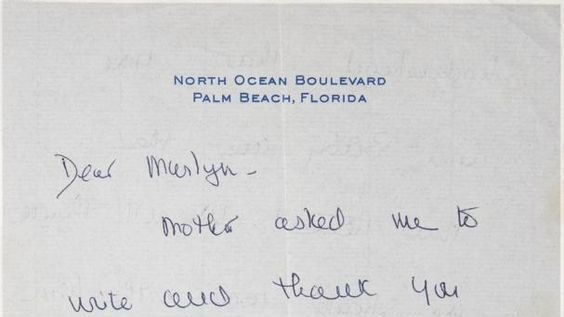 NORTH OCEAN BOULEVARD
PALM BEACH, FLORIDA
Dear Marlyn -
Mother asked me to
write and thank you